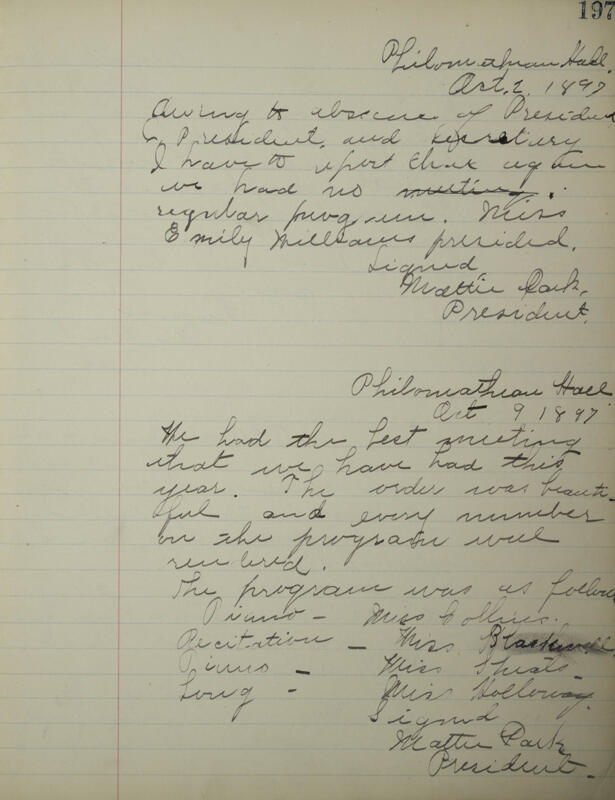 197
Philomathean Hall.
Oct. 2. 1897
Owing to absence of President
President, and secretary
I have to report that again
we had no meeting.
regular program. Miss
Emily Williams presided.
Signed,
Mattie Park.
President.
Philomathean Hall
Oct 9 1897.
We had the best meeting
that we have had this
year. The order was beauti-
ful and every number
on the program well
rendered.
The program was as follows
Piano - Miss Collins.
Recitation - Miss Blackwell.
Piano - Miss Sheats -
Song - Miss Holloway.
Signed
Mattie Park
President -